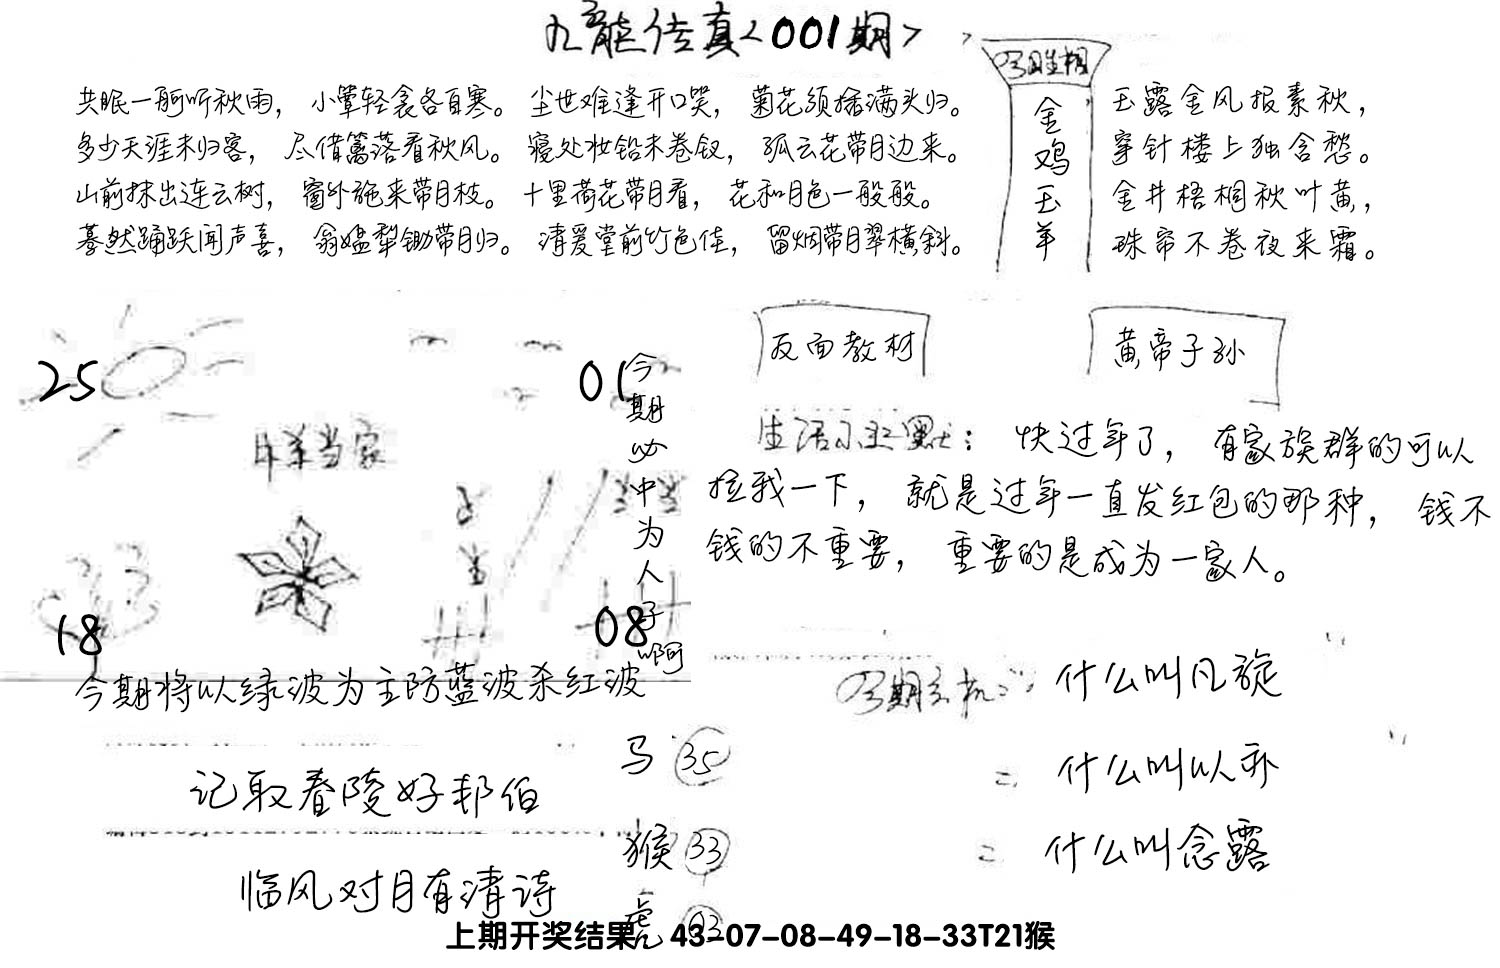 九龙传真<001期>
共眠一舸听秋雨，小簟轻衾各自寒。尘世难逢开口笑，菊花须插满头归。
多少天涯未归客，尽借篱落看秋风。寝处妆铅未卷钗，孤云花带月边来。
山前抹出连云树，窗外施来带月枝。十里荷花带月看，花和月色一般般。
蓦然踊跃闻声喜，翁媪犁锄带月归。清爱堂前竹色佳，留烟带月翠横斜。
今期生相
金鸡玉羊
玉露金风报素秋，
穿针楼上独含愁。
金井梧桐秋叶黄，
珠帘不卷夜来霜。
25
01
18
08
今期必中为人子啊
今期将以绿波为主防蓝波杀红波
反面教材
黄帝子孙
生活小幽默：快过年了，有家族群的可以
拉我一下，就是过年一直发红包的那种，钱不
钱的不重要，重要的是成为一家人。
今期玄机：什么叫凡旋
= 什么叫以亦
= 什么叫念露
记取春陵好邦伯
临风对月有清诗
马 35
猴 33
虎 03
上期开奖结果 43-07-08-49-18-33T21猴